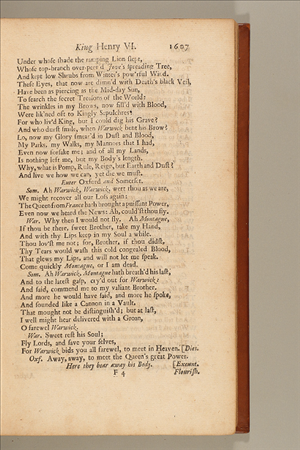 King Henry VI. 1607
Under whose shade the ramping Lion slept,
Whose top-branch over-peer'd Jove's spreading Tree,
And kept low Shrubs from Winter's pow'rful Wind.
These Eyes, that now are dimm'd with Death's black Veil,
Have been as piercing as the Mid-day Sun,
To search the secret Treasons of the World:
The wrinkles in my Brows, now fill'd with Blood,
Were lik'ned oft to Kingly Sepulchres:
For who liv'd King, but I could dig his Grave?
And who durst smile, when Warwick bent his Brow?
Lo, now my Glory smear'd in Dust and Blood,
My Parks, my Walks, my Mannors that I had,
Even now forsake me; and of all my Lands,
Is nothing left me, but my Body's length.
Why, what is Pomp, Rule, Reign, but Earth and Dust?
And live we how we can, yet die we must.
Enter Oxford and Somerset.
Som. Ah Warwick, Warwick, wert thou as we are,
We might recover all our Loss again:
The Queen from France hath brought a puissant Power,
Even now we heard the News: Ah, could'st thou fly.
War. Why then I would not fly. Ah Montague,
If thou be there, sweet Brother, take my Hand,
And with thy Lips keep in my Soul a while.
Thou lov'st me not; for, Brother, if thou didst,
Thy Tears would wash this cold congealed Blood,
That glews my Lips, and will not let me speak.
Come quickly Montague, or I am dead.
Som. Ah Warwick, Montague hath breath'd his last,
And to the latest gasp, cry'd out for Warwick:
And said, commend me to my valiant Brother.
And more he would have said, and more he spoke,
And sounded like a Cannon in a Vault,
That mought not be distinguish'd; but at last,
I well might hear delivered with a Groan,
O farewel Warwick.
War. Sweet rest his Soul;
Fly Lords, and save your selves,
For Warwick bids you all farewel, to meet in Heaven. [Dies.
Oxf. Away, away, to meet the Queen's great Power.
Here they bear away his Body. [Exeunt.
F 4 Flourish.